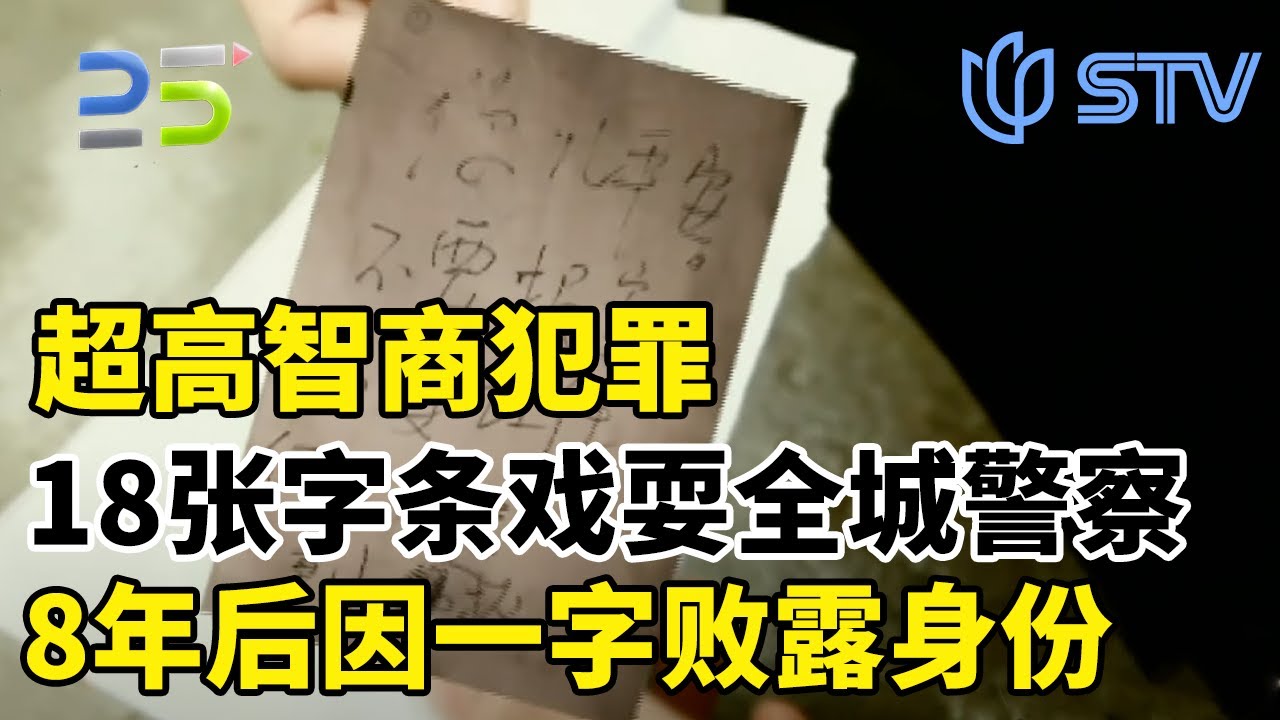 25
STV
您儿平安。
不要报
超高智商犯罪
18张字条戏耍全城警察
8年后因一字败露身份